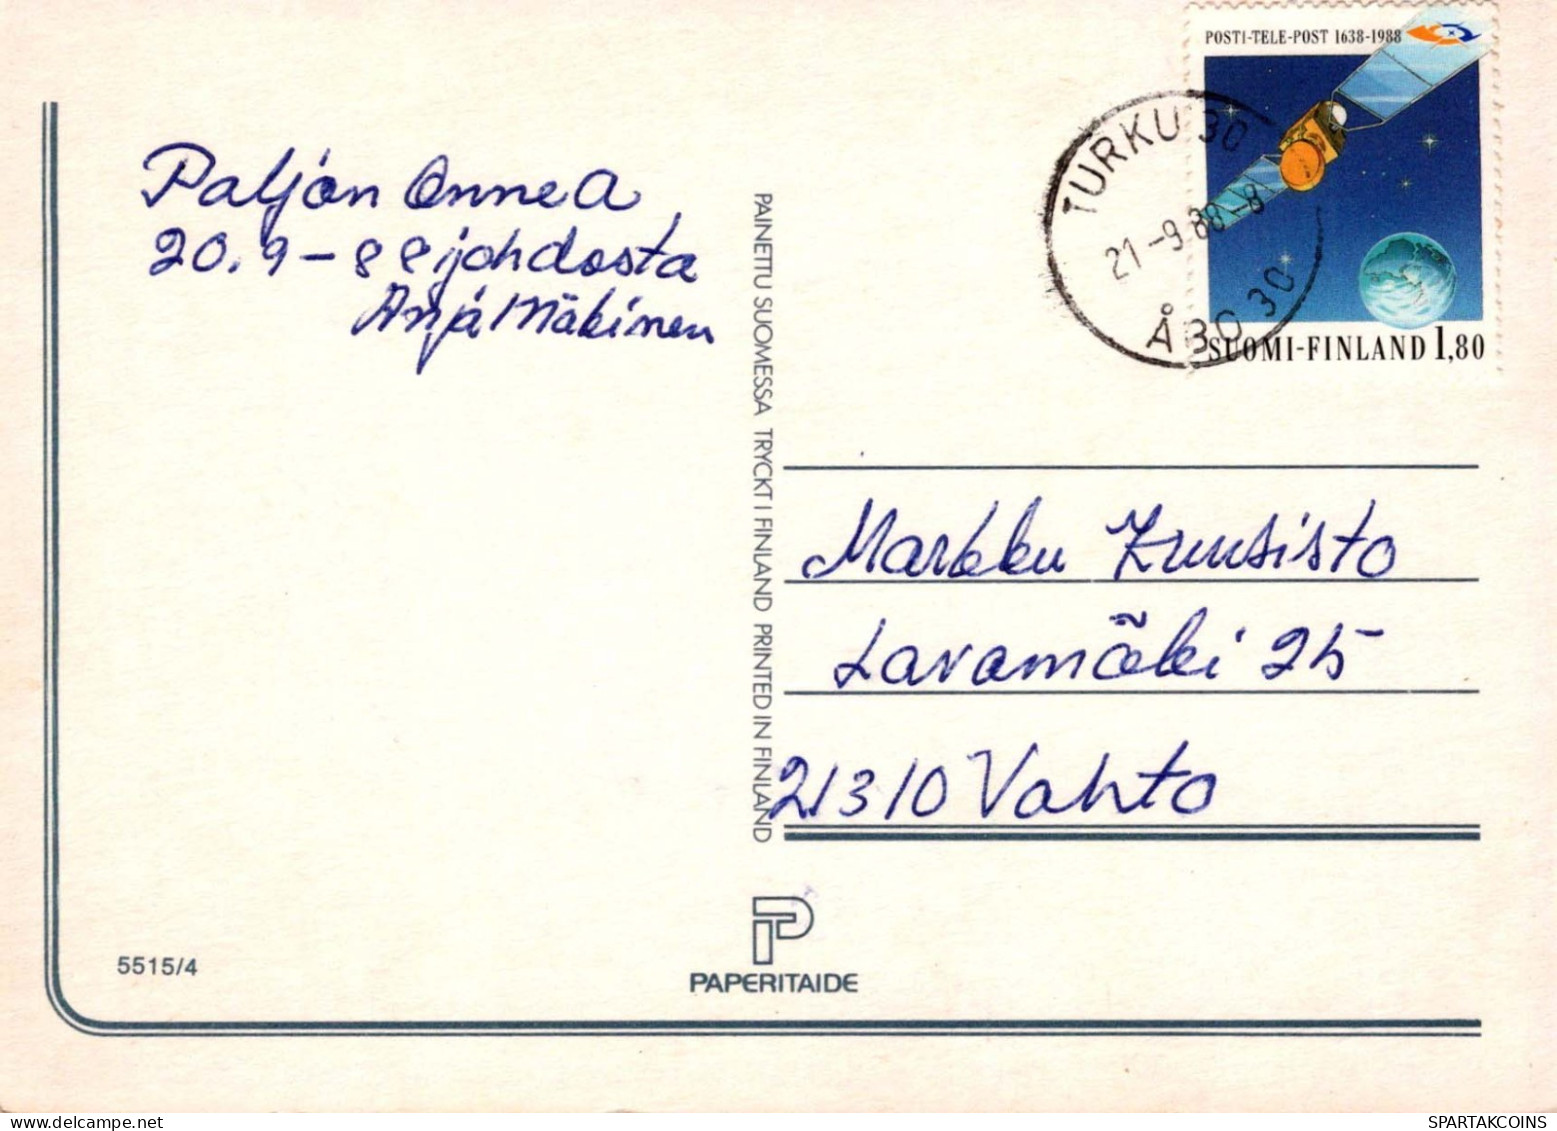 POSTI-TELE-POST 1638-1988
TURKU 30
21-9.88-8
ÅBO 30
SUOMI-FINLAND 1,80
Paljon Onnea
20.9-88 johdosta
Anja Mäkinen
PAINETTU SUOMESSA TRYCKT I FINLAND PRINTED IN FINLAND
Markku Kuusisto
Lavamäki 25
21310 Vahto
5515/4
PAPERITAIDE
SPARTAKCOINS